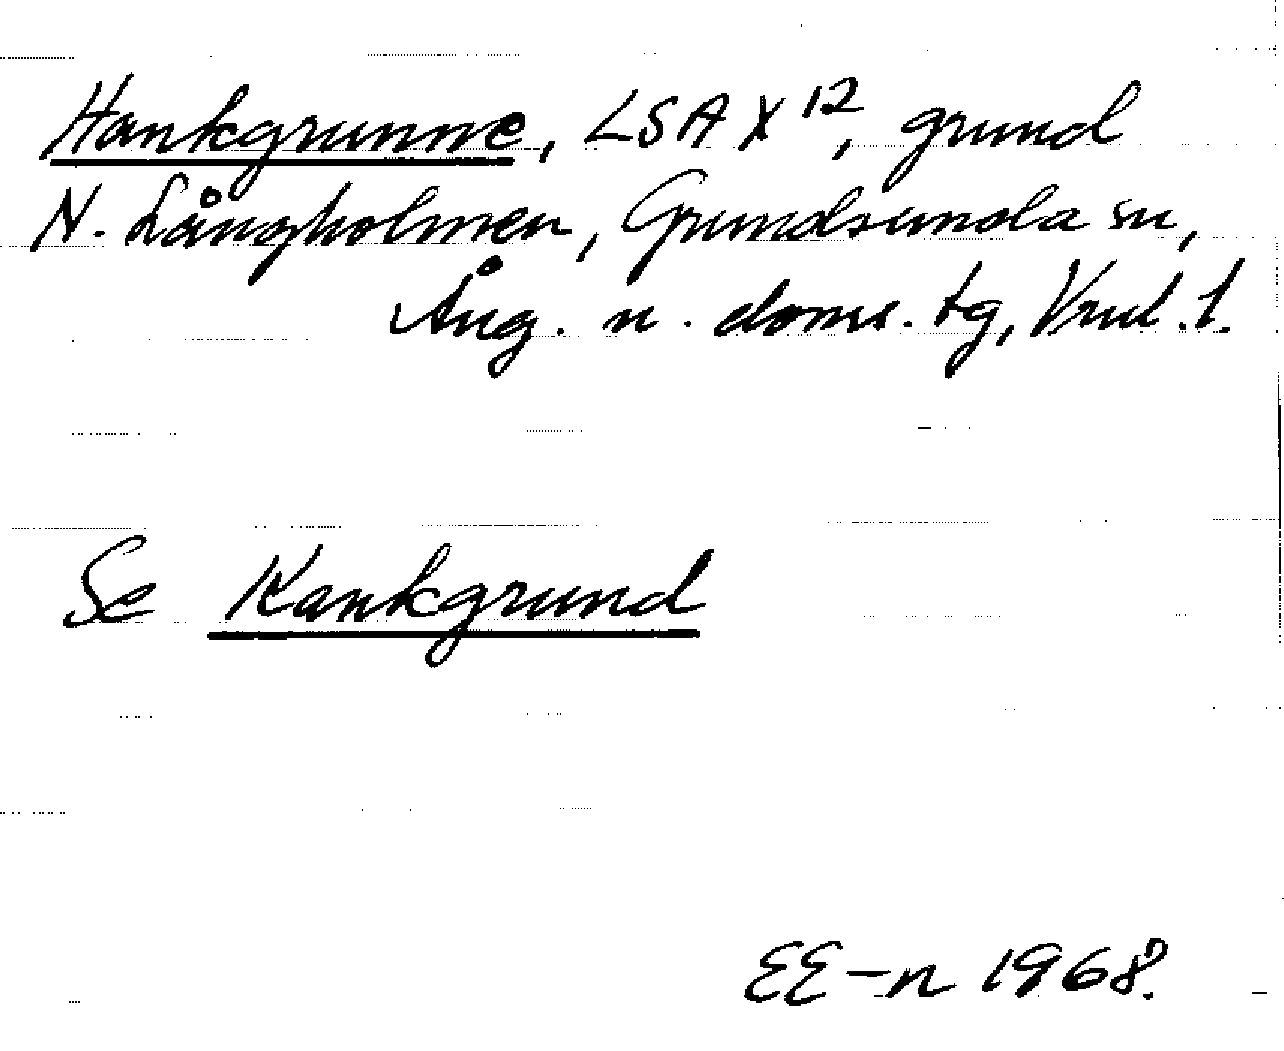 Hankgrunne, LSA X 12, grund
N. Långholmen, Grundsunda sn,
Ång. n. doms. tg, Vnl. l.
Se Kankgrund
EE-n 1968.